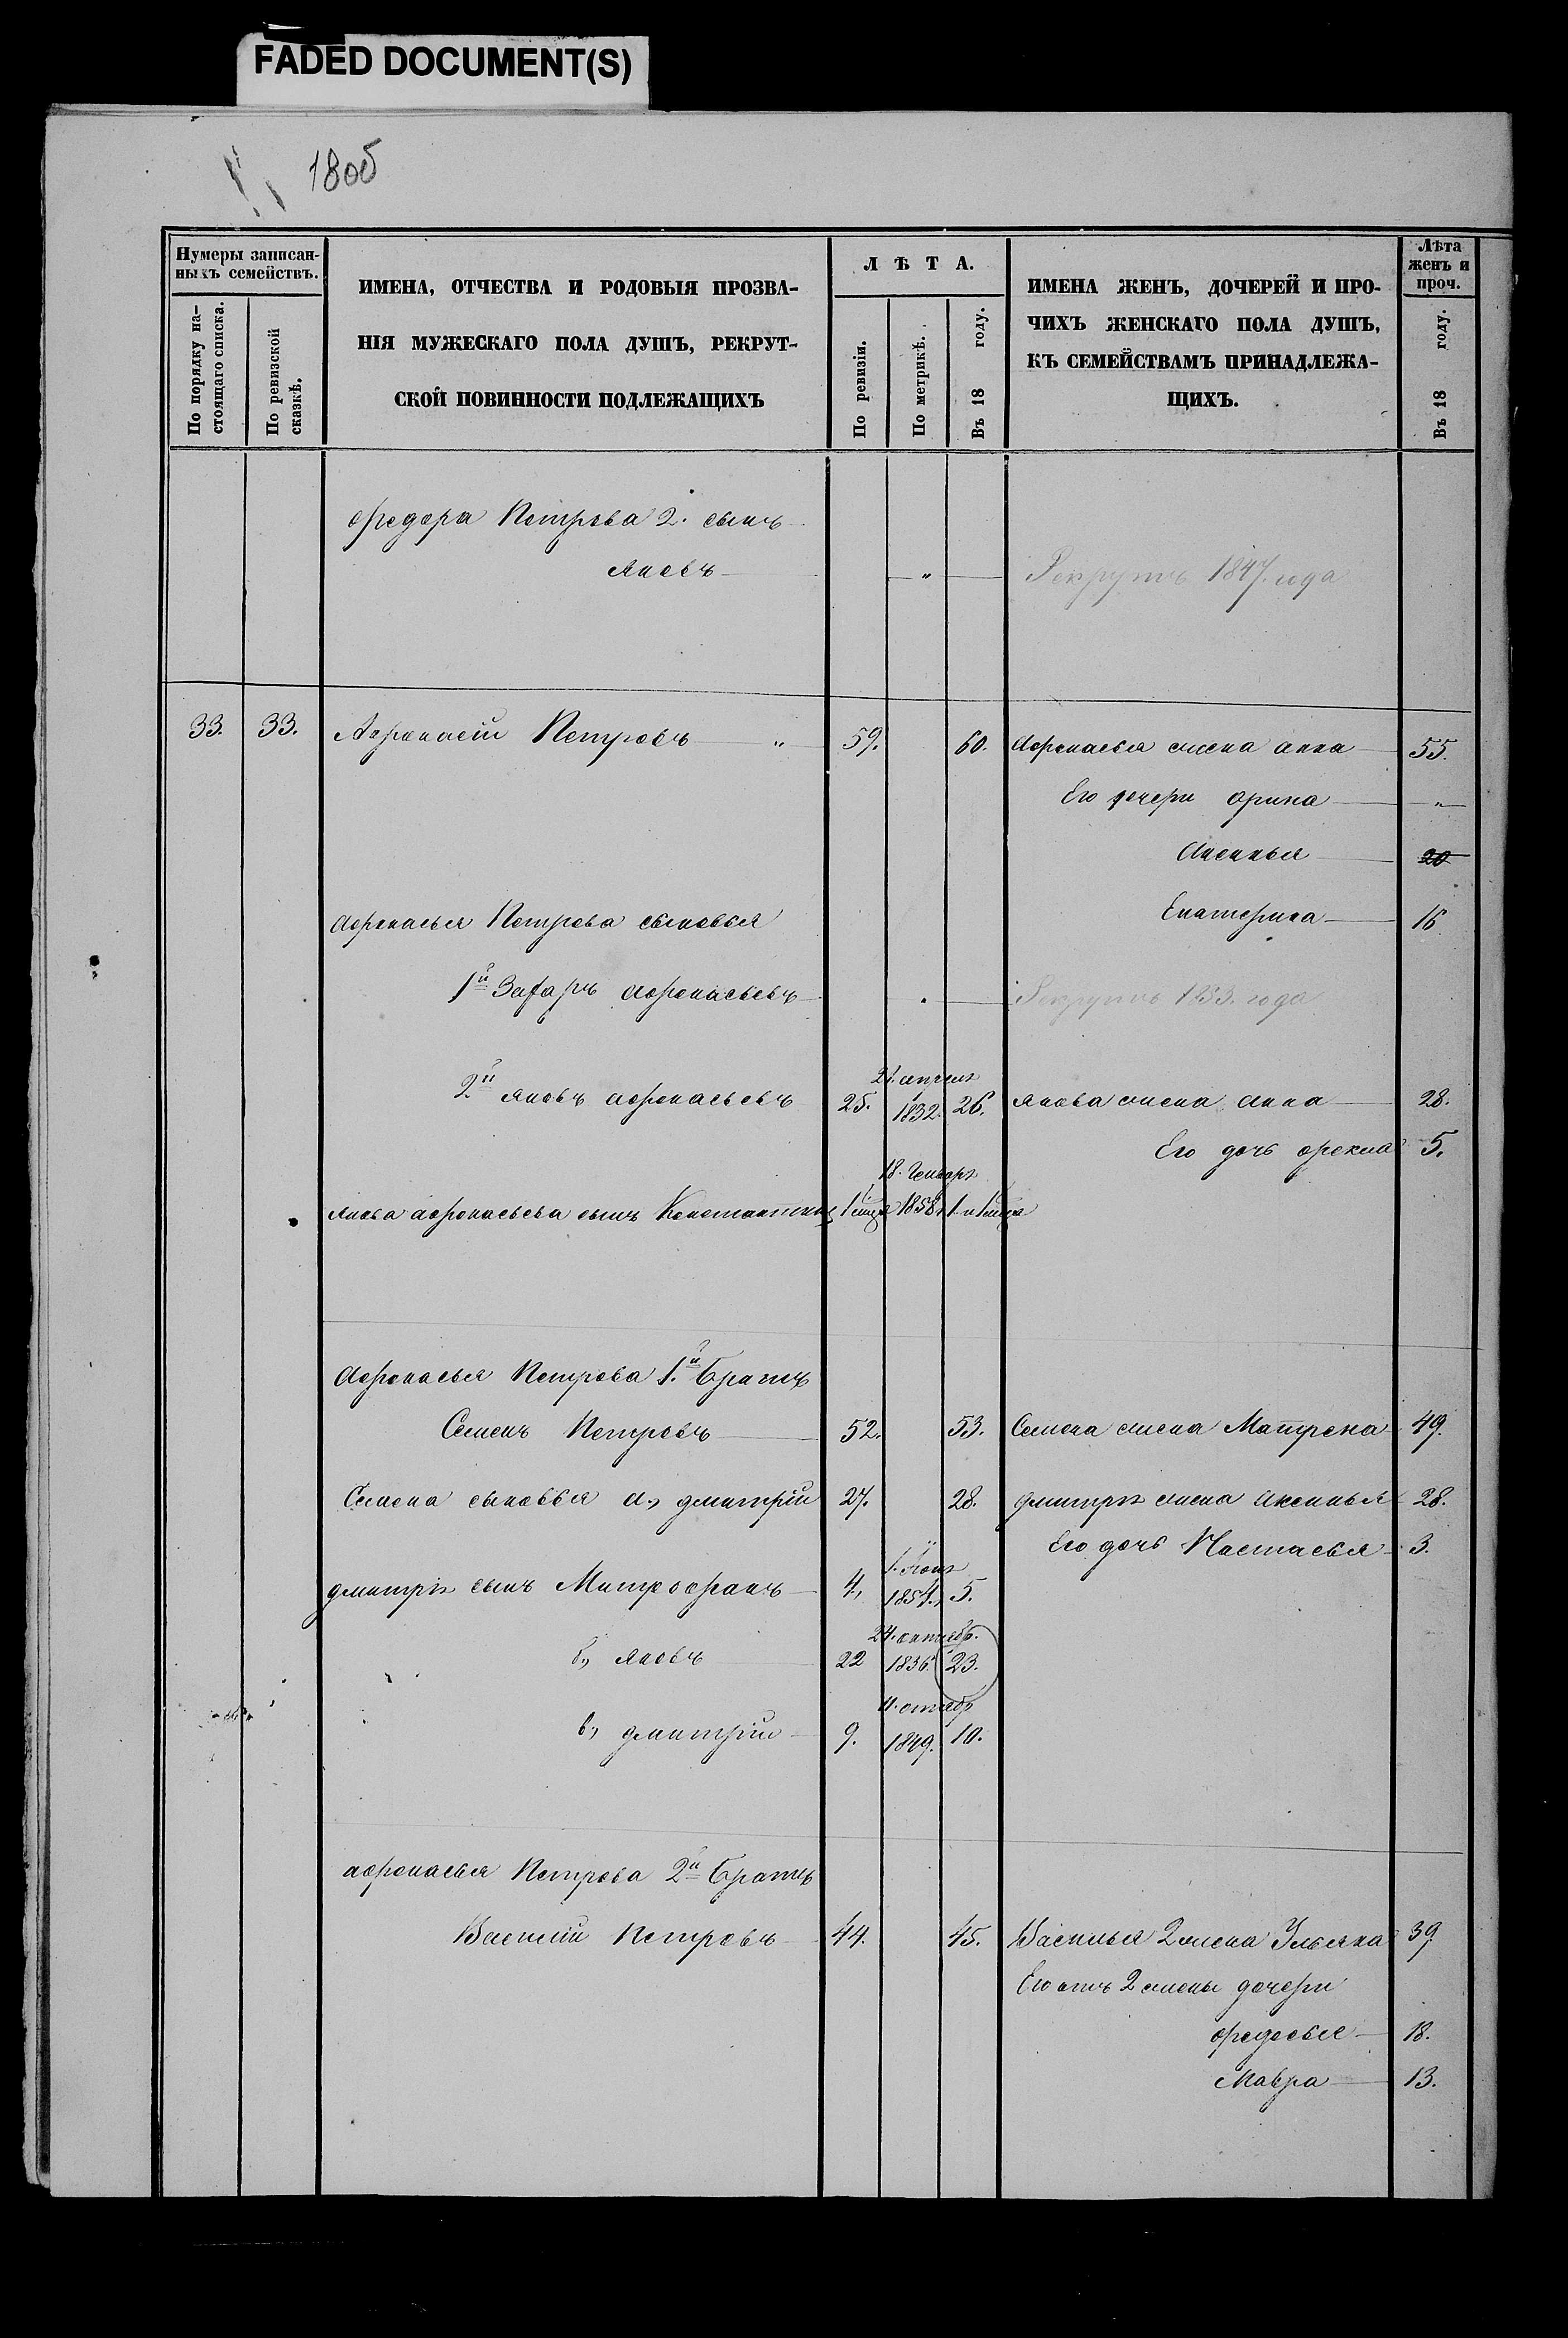 FADED DOCUMENT(S)
180б
Нумеры записан-
ныхъ семействъ.
По порядку на-
стоящаго списка.
По ревизской
сказкѣ.
ИМЕНА, ОТЧЕСТВА И РОДОВЫЯ ПРОЗВА-
НІЯ МУЖЕСКАГО ПОЛА ДУШЪ, РЕКРУТ-
СКОЙ ПОВИННОСТИ ПОДЛЕЖАЩИХЪ
ЛѢТА.
По ревизіи.
По метрикѣ.
Въ 18 году.
ИМЕНА ЖЕНЪ, ДОЧЕРЕЙ И ПРО-
ЧИХЪ ЖЕНСКАГО ПОЛА ДУШЪ,
КЪ СЕМЕЙСТВАМЪ ПРИНАДЛЕЖА-
ЩИХЪ.
Лѣта
женъ и
проч.
Въ 18 году.
Федора Петрова 2. сынъ
Яковъ " Рекрутъ 1847. года
33. 33. Афонасій Петровъ " 59. 60. Афонасья жена Анна 55.
Его дочери Орина "
Аксинья 20
Екатерина 16
Афонасья Петрова сыновья
1й Захаръ Афонасьевъ " Рекрутъ 1853. года
2й Яковъ Афонасьевъ 25. 21. апреля 1832. 26. Якова жена Анна 28.
Его дочь Фекла 5.
Якова Афонасьева сынъ Константинъ 1 мца 18. Генваря 1858. 1. и 1 мца
Афонасья Петрова 1й Братъ
Семенъ Петровъ 52. 53. Семена жена Матрена 49.
Семена сыновья а., Дмитрій 27. 28. Дмитрія жена Аксинья 28.
Его дочь Настасья 3.
Дмитрія сынъ Митрофанъ 4, 1. Іюня 1854. 5.
б., Яковъ 22 24. октябр. 1836. 23.
в., Дмитрій 9. 1849. 10.
Афонасья Петрова 2й Братъ
Василій Петровъ 44. 45. Василья 2 жена Ульяна 39
Его отъ 2 жены дочери
Федосья 18.
Мавра 13.